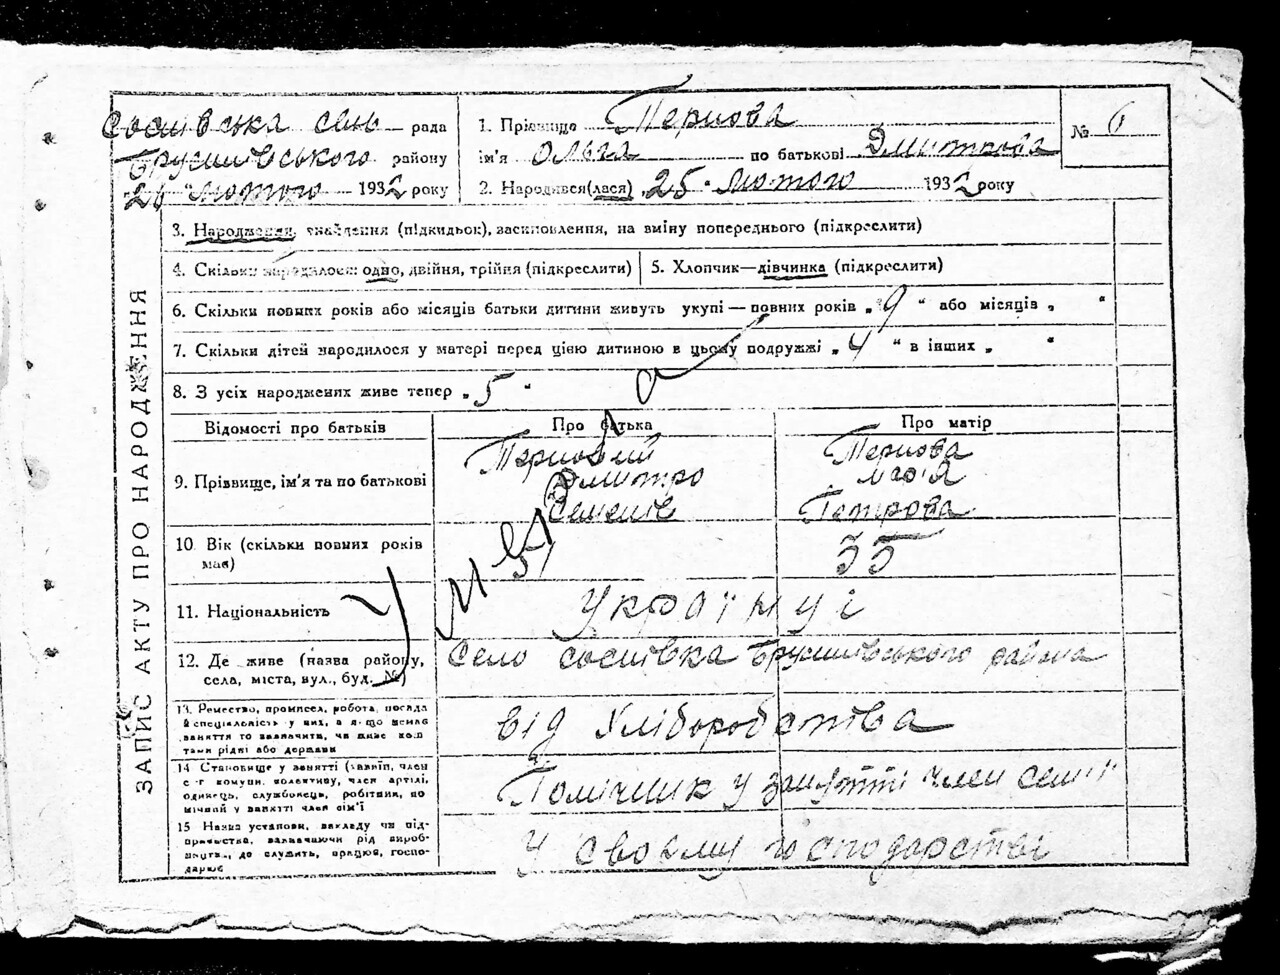 Соснівська сель рада
Брусилівського району
26 лютого 1932 року
1. Прізвище Тернова
ім'я Ольга по батькові Дмитрова
2. Народився(лася) „25" лютого 1932 року
№ 6
ЗАПИС АКТУ ПРО НАРОДЖЕННЯ
3. Народження, знайдення (підкидьок), засиновлення, на зміну попереднього (підкреслити)
4. Скільки народилося: одно, двійня, трійня (підкреслити)
5. Хлопчик—дівчинка (підкреслити)
6. Скільки повних років або місяців батьки дитини живуть укупі—повних років „9" або місяців „ "
7. Скільки дітей народилося у матері перед цією дитиною в цьому подружжі „4" в інших „ "
8. З усіх народжених живе тепер „5"
Відомості про батьків
Про батька
Про матір
9. Прізвище, ім'я та по батькові
Терновий
Дмитро
Семенів
Тернова
Марія
Петрова
10. Вік (скільки повних років
має)
35
11. Національність
Українці
12. Де живе (назва району,
села, міста, вул., буд. №)
Село Соснівка Брусилівського района
13. Ремество, промисел, робота, посада
й спеціяльність у них, а якщо немає
заняття то зазначити, чи живе кош
тами рідні або держави
від Хліборобства
14 Становище у занятті (хазяїн, член
с-г комуни, колективу, член артілі,
одинець, службовець, робітник, по
мічний у занятті член сім'ї
Помічник у занятті член семії
15 Назва установи, закладу чи під-
приємства, зазначаючи рід вироб-
ництв., де служить, працює, госпо-
дарює
У своєму господарстві
умерла